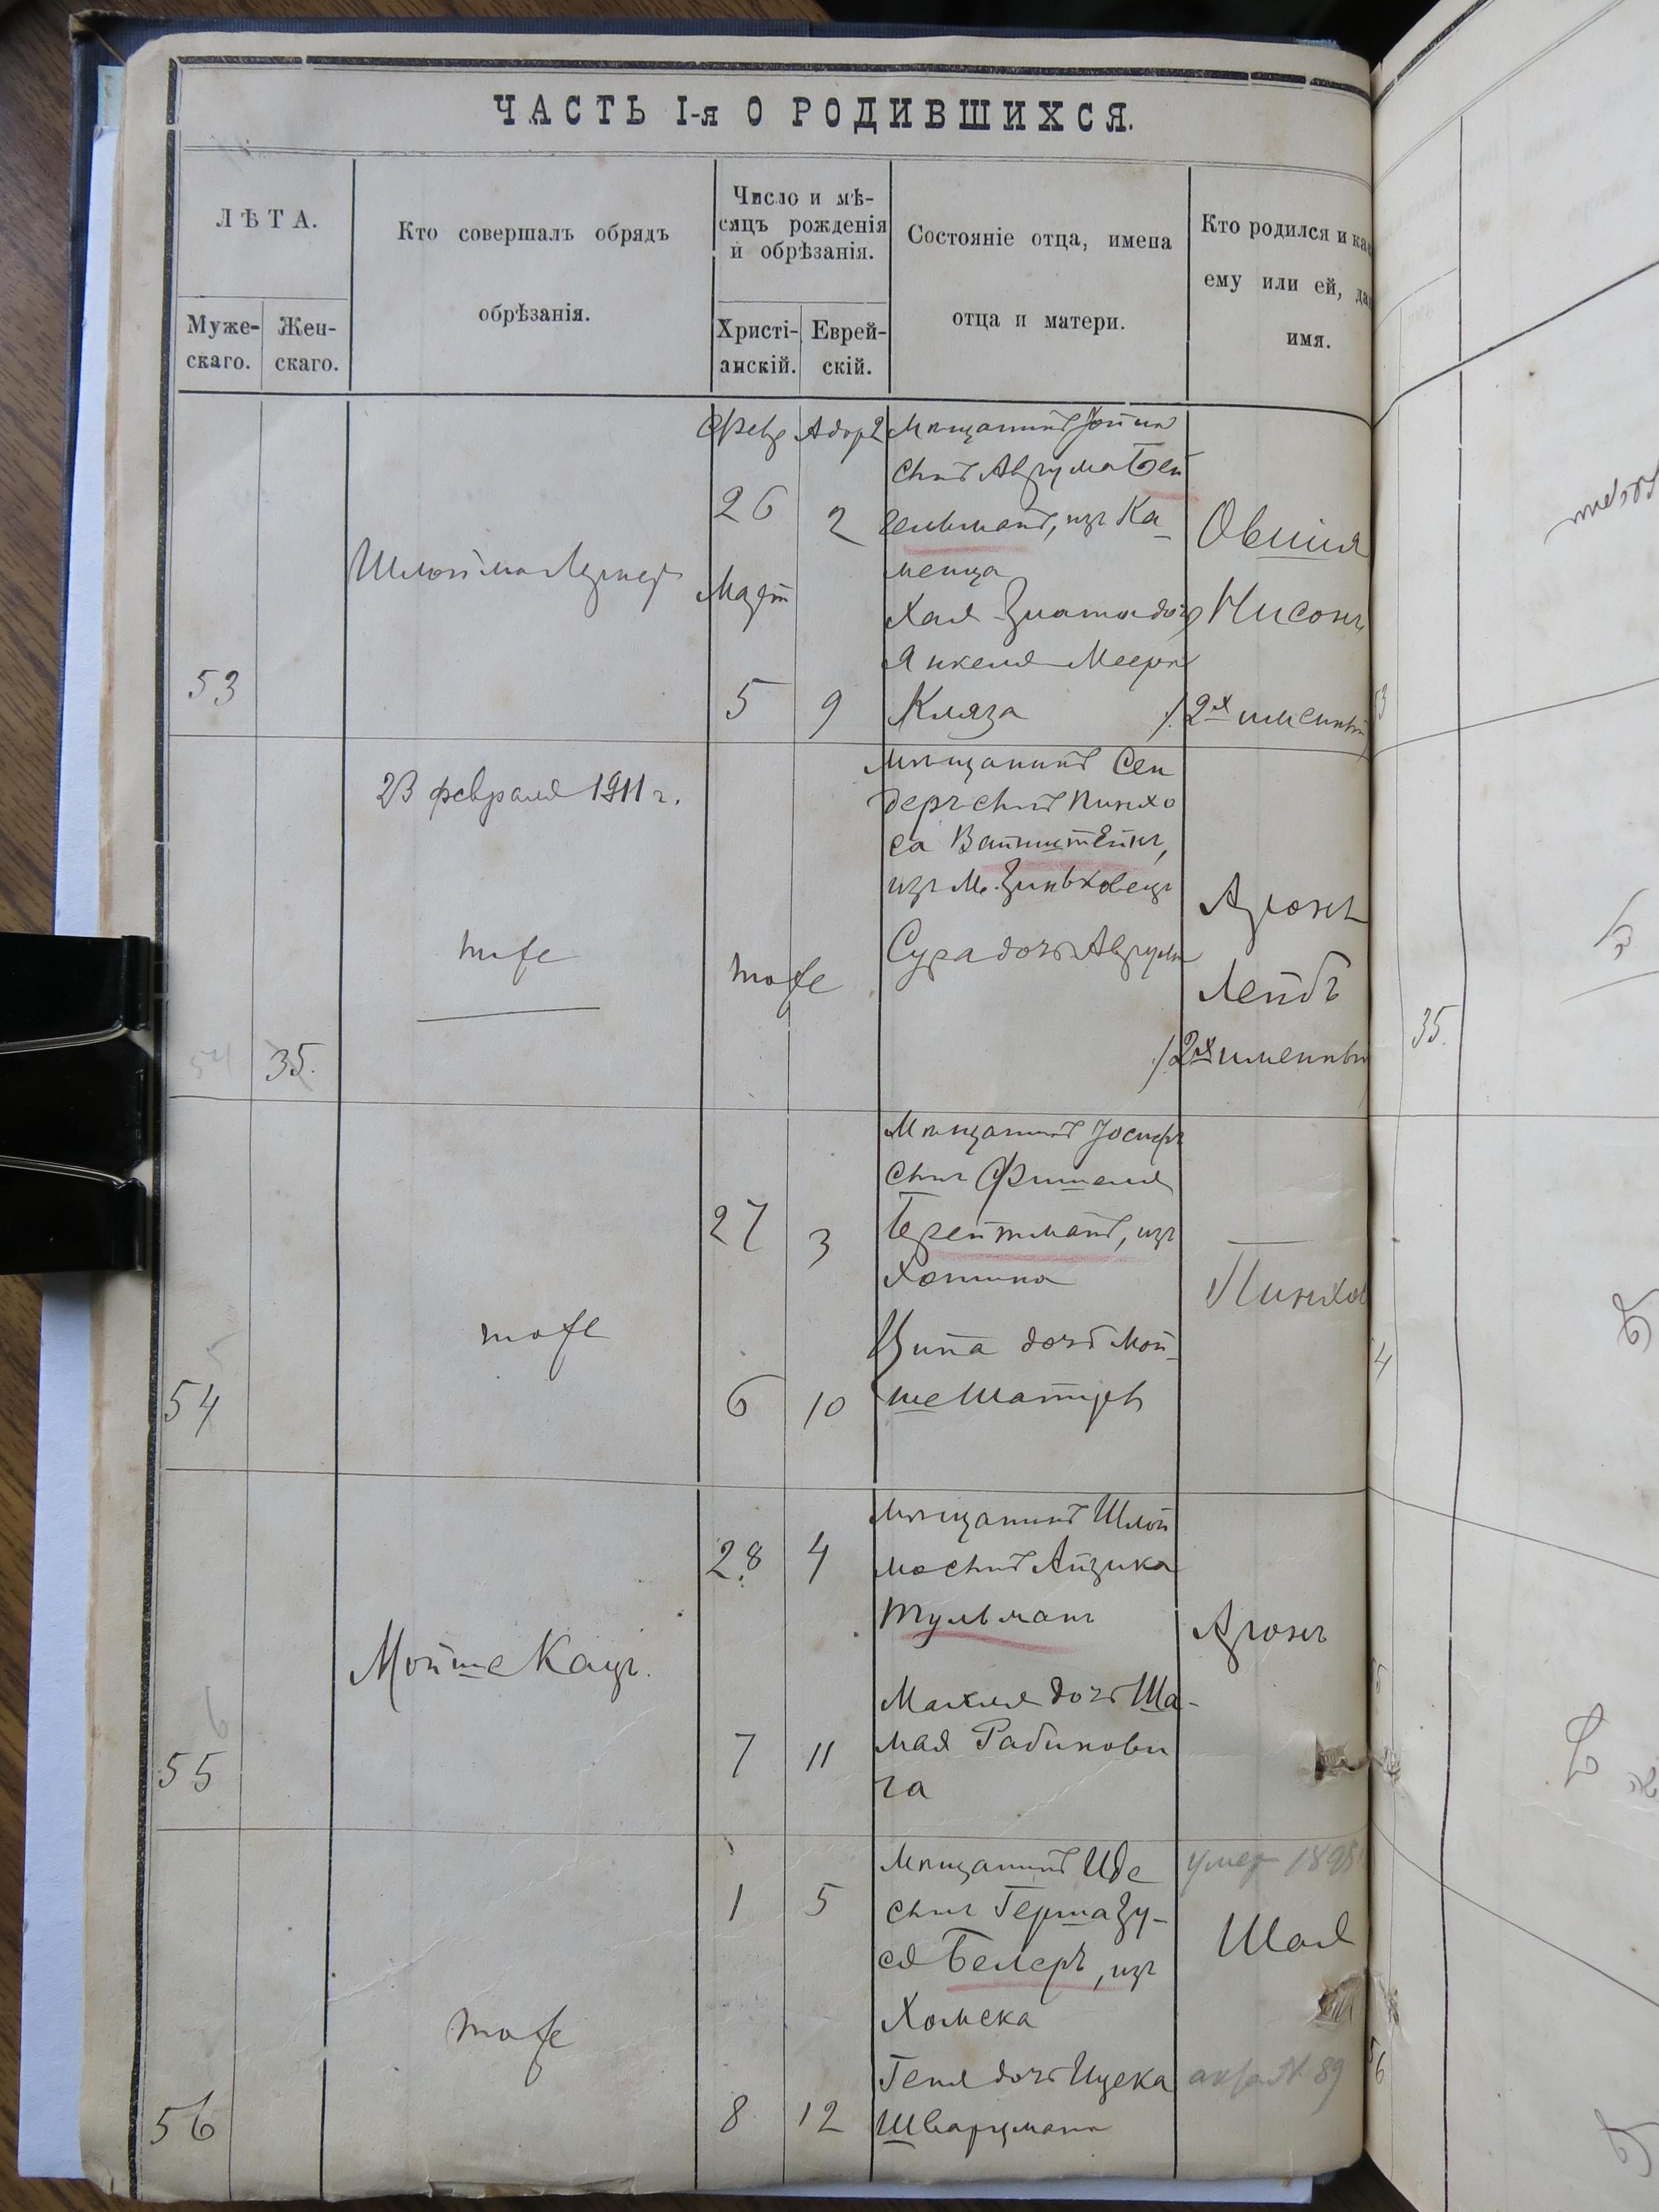 ЧАСТЬ I-я О РОДИВШИХСЯ.
ЛѢТА.
Муже-
скаго.
Жен-
скаго.
Кто совершалъ обрядъ
обрѣзанія.
Число и мѣ-
сяцъ рожденія
и обрѣзанія.
Христі-
анскій.
Еврей-
скій.
Состояніе отца, имена
отца и матери.
Кто родился и как
ему или ей, да
имя.
53
Шлойма
Февр
26
Март
5
Адоръ 2
2
9
Мѣщанинъ
сынъ Аврума Бей
гельманъ, изъ Ка-
менца
Хая Злата дочь
Янкеля Меера
Княза
Овшія
Нисонъ
/2х именный
53
35.
23 февраля 1911 г.
тоже
тоже
мѣщанинъ Сен
деръ сынъ Пинхо
са Вайнштейнъ,
изъ м. Зиньковецъ
Сура дочь Аврума
Аронъ
Лейбъ
/2х именный
35.
54
тоже
27
6
3
10
Мѣщанинъ Іосифъ
сынъ Фишеля
Брейтманъ, изъ
Хотина
Ципа дочь Мой-
ше
Пинхос
4
55
6
Мойше Кацъ.
28
7
4
11
мѣщанинъ Шлой
ма сынъ Айзика
Тульманъ
Малка дочь Ша-
мая Рабинови
ча
Аронъ
56
тоже
1
8
5
12
Мѣщанинъ Иде
сынъ Герша Зу-
ся Белеръ, изъ
Хомска
Геня дочь Ицека
Шварцмана
умер 1895
Шая
акта № 89
56